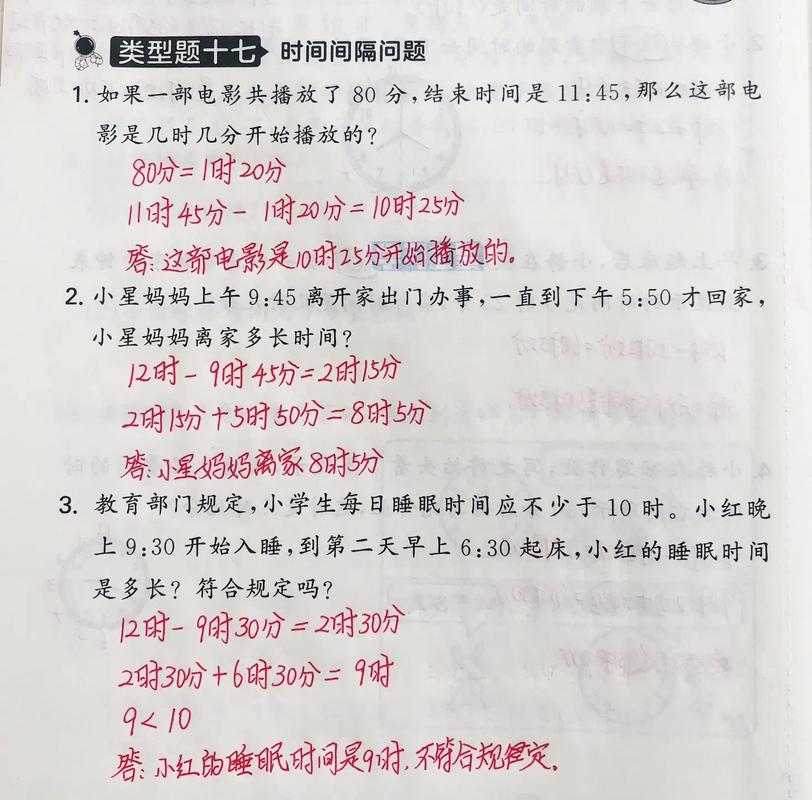 类型题十七 时间间隔问题
1. 如果一部电影共播放了 80 分,结束时间是 11:45,那么这部电
影是几时几分开始播放的?
80分=1时20分
11时45分-1时20分=10时25分
答:这部电影是10时25分开始播放的。
2. 小星妈妈上午 9:45 离开家出门办事,一直到下午 5:50 才回家,
小星妈妈离家多长时间?
12时-9时45分=2时15分
2时15分+5时50分=8时5分
答:小星妈妈离家8时5分
3. 教育部门规定,小学生每日睡眠时间应不少于 10 时。小红晚
上 9:30 开始入睡,到第二天早上 6:30 起床,小红的睡眠时间
是多长?符合规定吗?
12时-9时30分=2时30分
2时30分+6时30分=9时
9<10
答:小红的睡眠时间是9时,不符合规定。